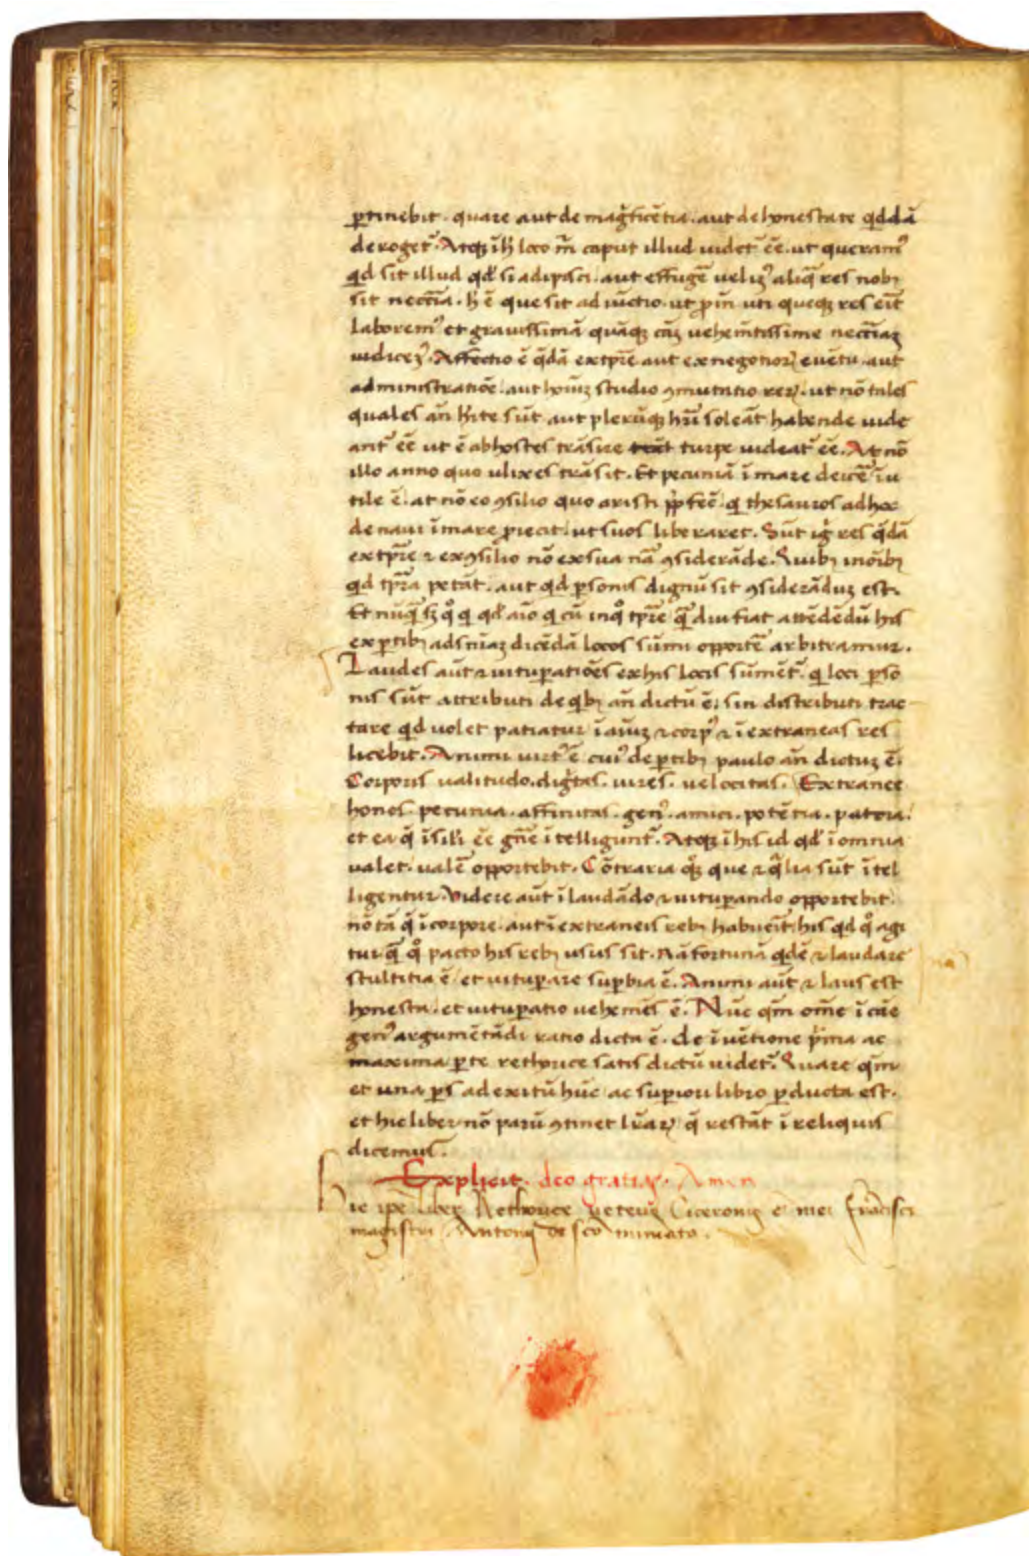 ꝑtinebit. quare aut de mag̃ficẽtia. aut de honestate qd̃dã
deroget᷒. Atqꝫ ĩ h̃ loco m̃ caput illud uidet᷒ ẽe. ut queram᷒
qd̃ sit illud qd̃ si adipisci. aut effugẽ ueliꝫ᷒ aliq̃ res nobꝫ
sit necc̃ia. h̃ ẽ que sit adiũctio. ut ꝓin uti queqꝫ res eĩt
laborem᷒ et grauissimã quãqꝫ cãꝫ uehem̃tissime necc̃iaꝫ
iudiceꝫ᷒. Affectio ẽ q̃dã ex tp̃re aut ex negotioꝝ euẽtu. aut
administratiõe. aut hoĩuꝫ studio ꝯmutatio reꝝ. ut nõ tales
quales añ h̃ite sũt aut plerũqꝫ h̃ri soleãt habende uide
ant᷒ ẽe ut ẽ ab hostes trãsire turpe uideat᷒ ẽe. At nõ
illo anno quo ulixes trãsit. Et pecuniã ĩ mare deicẽ ĩu
tile ẽ. at nõ eo ꝯsilio quo aristipp᷒ fẽc
de naui ĩ mare ꝓiecit. ut suos liberaret. Sũt ig̃ res q̃dã
ex tp̃re ⁊ ex ꝯsilio nõ ex sua nã ꝯsiderãde. Quibꝫ ĩ oĩbꝫ
qd̃ tp̃ra petãt. aut qd̃ ꝑsonis dignũ sit ꝯsiderãduꝫ est.
attẽdẽdũ his
ex ꝑtibꝫ ad sñiaꝫ dicẽdã locos sũmi opportẽ arbitramur.
Laudes aũt ⁊ uituꝑatiões ex his locis sũment᷒. q̃ loci ꝑso
nis sũt attributi de qibꝫ añ dictũ ẽ. sin distributi trac
tare qd̃ uolet patiatur ĩ aĩuꝫ ⁊ corp᷒ ⁊ ĩ extraneas res
licebit. Animi uirt᷒ ẽ cui᷒ de ꝑtibꝫ paulo añ dictuꝫ ẽ.
Corporis ualitudo. dig̃tas. uires. uelocitas. Extranee
honos pecunia. affinitas. gen᷒. amici. potẽtia. patria.
et ea q̃ ĩ sili ẽe gñe ĩtelligunt᷒. Atqꝫ ĩ his id qd̃ ĩ omnia
ualet. ualẽ opportebit. Cõtraria qꝫ que ⁊ q̃lia sũt ĩtel
ligentur. Videre aũt ĩ laudãdo ⁊ uituꝑando opportebit.
nõ tã q̃ ĩ corpore. aut ĩ extraneis rebꝫ habueĩt his qd̃ q̊ agi
tur q̃ q̊ pacto his rebꝫ usus sit. Nã fortunã qdẽ ⁊ laudare
stultitia ẽ. et uituꝑare suꝑbia ẽ. Animi aũt ⁊ laus est
honesta. et uituꝑatio uehemẽs ẽ. Nũc qm̃ om̃e ĩ cãe
gen᷒ argumẽtãdi ratio dicta ẽ. de ĩuẽtione pĩma ac
maxima ꝑte rethorice satis dictũ uidet᷒. Quare qm̃
et una ꝑs ad exitũ hũc ac suꝑiori libro ꝑducta est.
et hic liber nõ parũ ꝯtinet lr̃aꝝ q̃ restãt ĩ reliquis
dicemus.
Explicit. deo gratias. Amen
Hic ip̃e liber Rethorice ueteris Ciceronis ẽ mei frãcisci
magistri Antonij de sc̃o miniato.